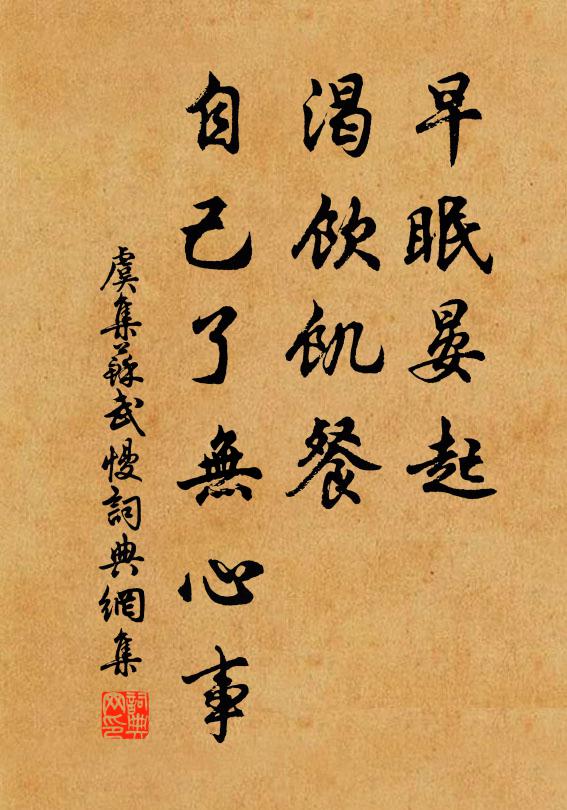 早眠晏起
渴飲飢餐
自己了無心事
虞集蘇武慢詞典網集
詞典網印